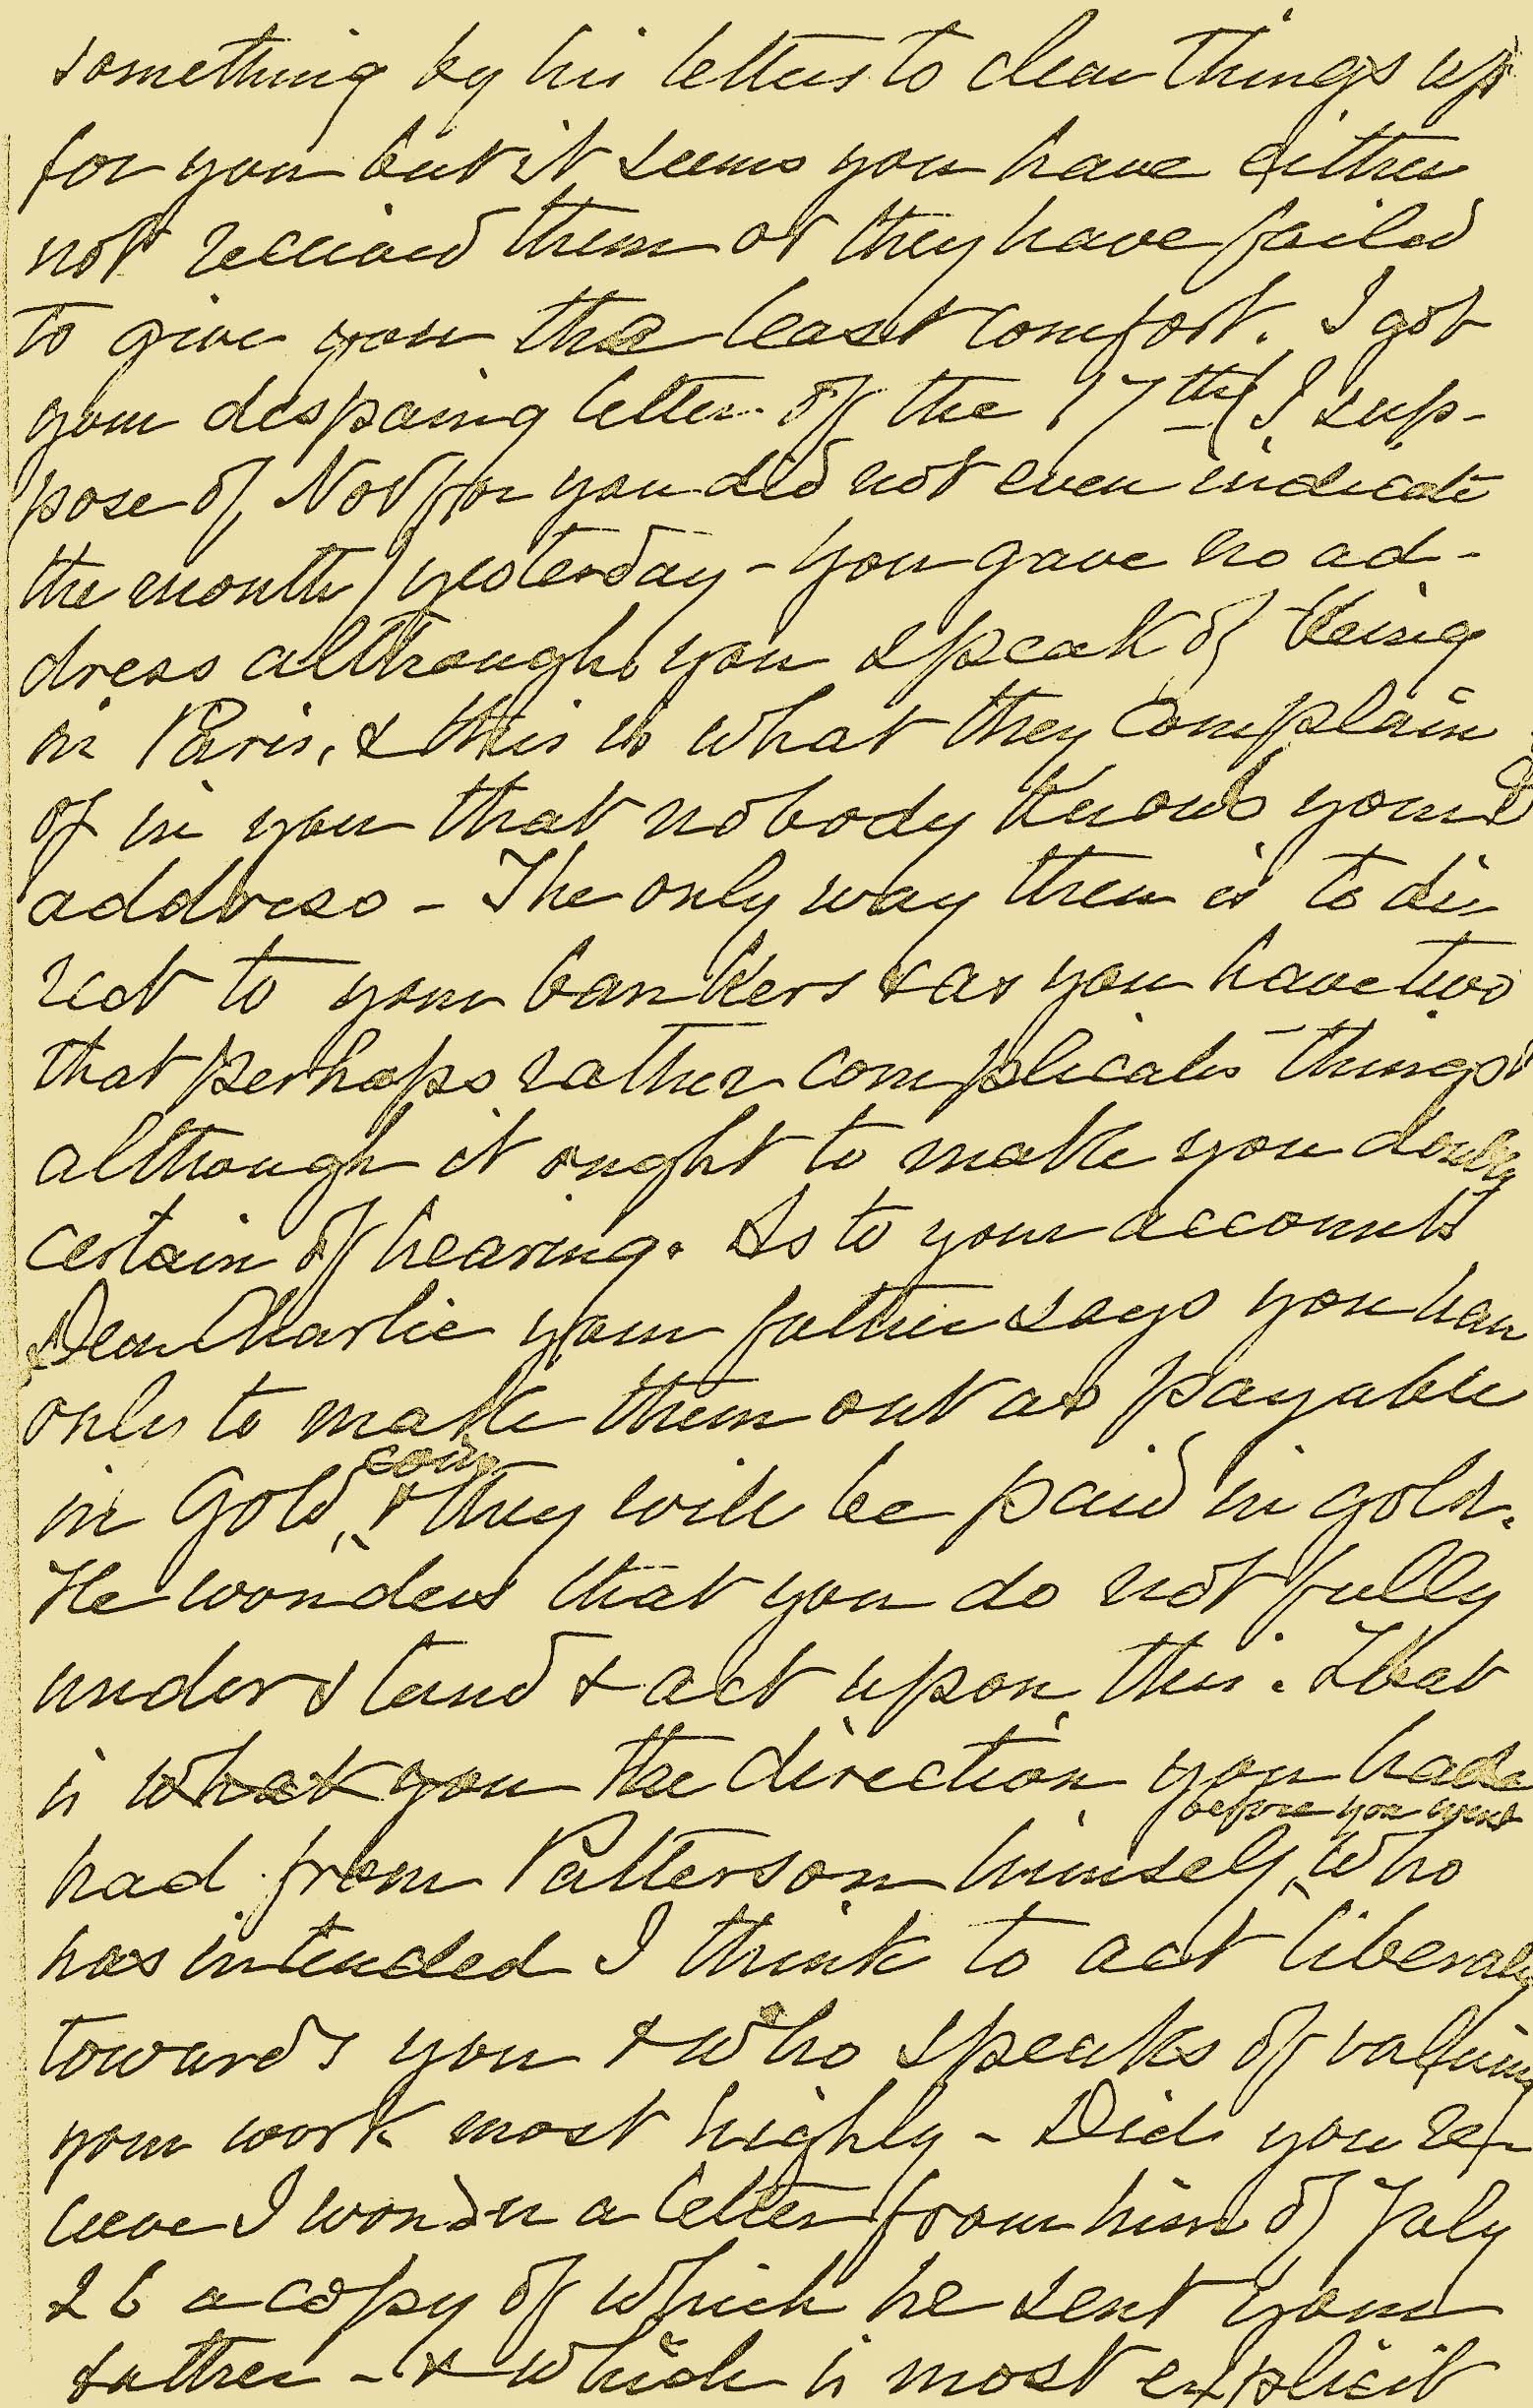 something by his letters to clear things up
for you but it seems you have either
not received them or they have failed
to give you the least comfort. I got
your despaing letter of the 17th (I sup-
pose of Nov for you did not even indicate
the month) yesterday - you gave no ad-
dress although you speak of being
in Paris, & this is what they complain
of in you that nobody knows your
address - The only way then is to di
rect to your bankers & as you have two
that perhaps rather complicates things
although it ought to make you doubly
certain of hearing. As to your accounts
Dear Charlie your father says you have
only to make them out as payable
coin
in Gold, & they will be paid in gold.
He wonders that you do not fully
understand & act upon this. That
is what you the direction you had
before you went
had from Patterson himself, who
has intended I think to act liberally
towards you & who speaks of valuing
your work most highly - Did you re-
ceive I wonder a letter from him of July
26 a copy of which he sent your
father - & which is most explicit